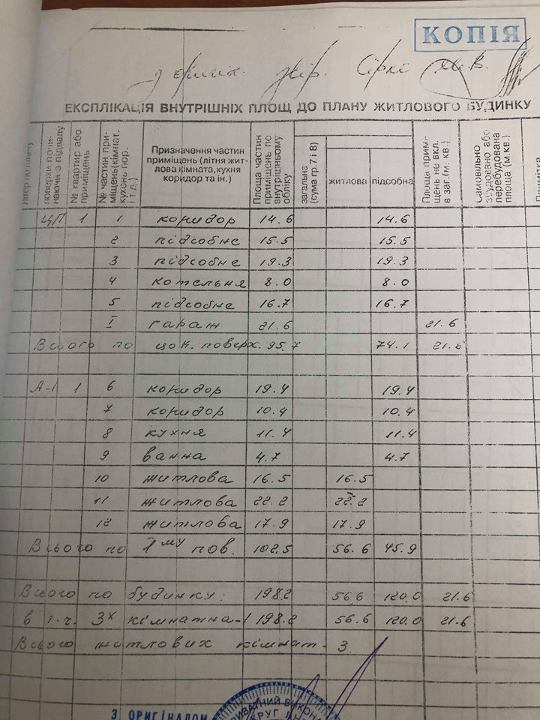 КОПІЯ
з оригін. звір. Сіркі
ЕКСПЛІКАЦІЯ ВНУТРІШНІХ ПЛОЩ ДО ПЛАНУ ЖИТЛОВОГО БУДИНКУ
поверхи почи-
наючи з підвалу
№ квартир або
приміщень
№ частин при-
міщень (кімнат,
кухонь, кор.
і т.п.)
Призначення частин
приміщень (літня жит-
лова кімната, кухня
коридор та ін.)
Площа частин
приміщень по
внутрішньому
обліку
загальна
(сума гр. 7 і 8)
житлова
підсобна
Площа прим-
щень не вкл.
в заг. (м. кв.)
Самовільно
збудовано або
перебудована
площа (м.кв.)
Примітка
ЦП 1 1 коридор 14.6 14.6
2 підсобне 15.5 15.5
3 підсобне 19.3 19.3
4 котельня 8.0 8.0
5 підсобне 16.7 16.7
I гараж 21.6 21.6
Всього по цок. поверх. 95.7 74.1 21.6
А-I 1 6 коридор 19.4 19.4
7 коридор 10.4 10.4
8 кухня 11.4 11.4
9 ванна 4.7 4.7
10 житлова 16.5 16.5
11 житлова 22.2 22.2
12 житлова 17.9 17.9
Всього по 1му пов. 102.5 56.6 45.9
Всього по будинку: 198.2 56.6 120.0 21.6
в т.ч. 3х кімнатна-1 198.2 56.6 120.0 21.6
Всього житлових кімнат - 3
З ОРИГІНАЛОМ
ПРИВАТНИЙ ВИКОН
ОКРУГ